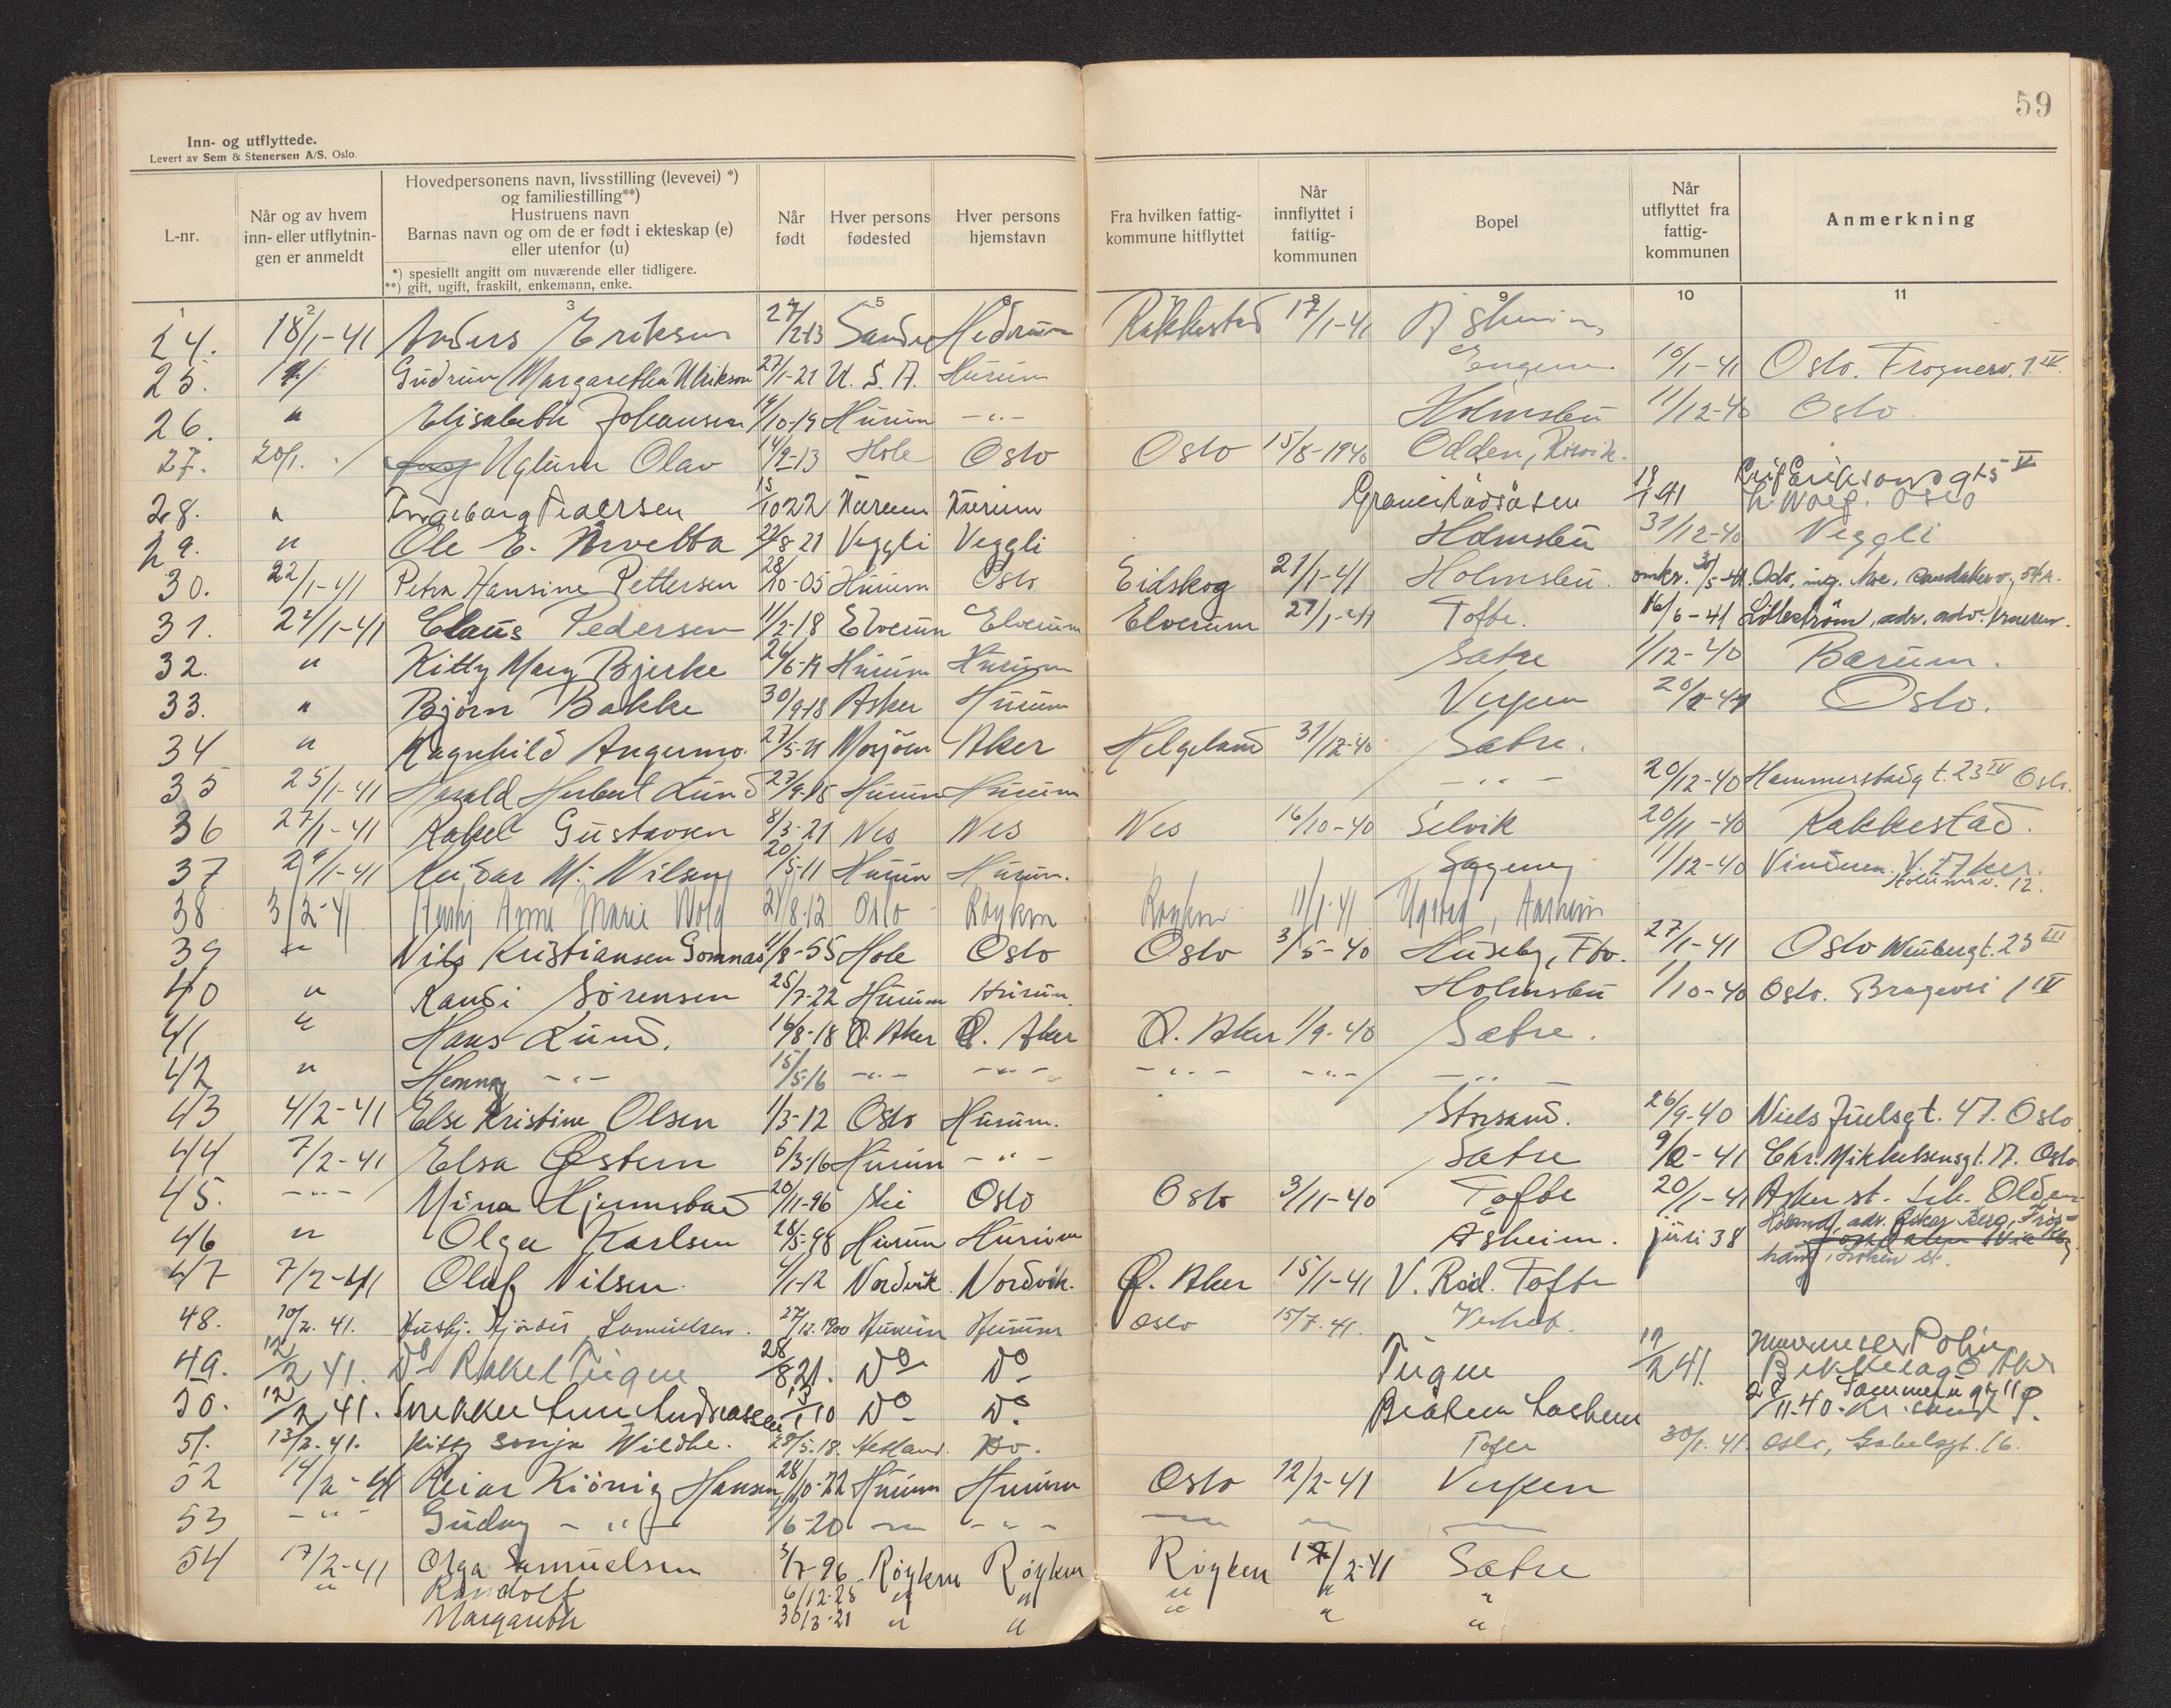 59
Inn- og utflyttede.
Levert av Sem & Stenersen A/S. Oslo.
L-nr.
Når og av hvem inn- eller utflytnin-gen er anmeldt
Hovedpersonens navn, livsstilling (levevei) *)
og familiestilling**)
Hustruens navn
Barnas navn og om de er født i ekteskap (e)
eller utenfor (u)
*) spesiellt angitt om nuværende eller tidligere.
**) gift, ugift, fraskilt, enkemann, enke.
Når født
Hver persons fødested
Hver persons hjemstavn
Fra hvilken fattig-kommune hitflyttet
Når innflyttet i fattig-kommunen
Bopel
Når utflyttet fra fattig-kommunen
Anmerkning
1 2 3 4 5 6 8 9 10 11
24. 18/1-41 Anders Eriksen 27/2-13 Sande Hedrum Rakkestad 17/1-41
25. Gudrun Margaretha Ulrikson 27/1-21 U. S. A. Hurum Engene 10/1-41 Oslo. Frognerv. 1 IV
26. " Elisabeth Johansen 19/10-19 Hurum -"- Holmsbu 11/12-40 Oslo
27. 20/1. Uglum Olav 14/9-13 Hole Oslo Oslo 15/8-1940 Odden,
28. " Ingeborg Pedersen 15/10 22 Hurum Hurum 19/1 41 Leif Eriksons gt 5 V
Oslo
29. " Ole E. 22/8-21 Veggli Veggli Holmsbu 31/12-40 Veggli
30. 22/1-41 Petra Hansine Pettersen 28/10-05 Hurum Oslo Eidskog 21/1-41 Holmsbu. omkr. 30/5-41. Oslo, ing. Moe,
31. 22/1-41 Claus Pedersen 11/2-18 Elverum Elverum Elverum 27/1-41 Tofte. 16/6-41 Lilleström,
32. " Kitty Mary Bjerke 24/6-19 Hurum Hurum Sætre 1/12-40 Bærum.
33. " Bjørn Bakke 30/9-18 Asker Hurum Verpen Oslo.
34 " Ragnhild Angermo. 27/5-21 Mosjöen Aker Helgeland 31/12-40 Sætre.
35 25/1-41 Harald Herbert Lund 27/9-15 Hurum Hurum -"- 20/12-40 Hammerstadgt. 23 IV Oslo.
36 27/1-41 Rakel Gustavsen 8/3-21 Nes Nes Nes 16/10-40 Selvik 20/11-40 Rakkestad.
37 29/1-41 Reidar M. Nilsen 20/5-11 Hurum Hurum. Sagene 11/12-40 Vinderen. V. Aker.
12.
38 3/2-41 Husbj Anna Marie Wold 21/8-12 Oslo Røyken Røyken 11/1-41
39 " Nils Kristiansen Gomnæs 11/8-55 Hole Oslo Oslo 3/5-40 Huseby, 27/1-41 Oslo 23 III
40 " Randi Sörensen 25/7-22 Hurum Hurum. Holmsbu 1/10-40 Oslo. Bragevei 1 IV
41 " Hans Lund. 16/8-18 Ø. Aker Ø. Aker Ø. Aker 1/9-40 Sætre.
42 " Henny -"- 15/5-16 -"- -"- -"- -"- -"-
43 4/2-41 Else Kristine Olsen 1/3-12 Oslo Hurum. Storsand. 26/9-40 Niels Juelsgt. 47. Oslo
44 7/2-41 Elsa Østern 6/3-16 Hurum -"- Sætre 9/2-41 Chr. Mikkelsensgt. 17. Oslo
45. -"- Mina 20/11-96 Ski Oslo Oslo 3/11-40 Tofte 20/1-41 Asker st.
46 " Olga Karlsen 28/5-98 Hurum Hurum Åsheim. juni 38
47 7/2-41 Oluf Nilsen. 4/1-12 Nordvik Nordvik. Ø. Aker 15/1-41 V. Rød. Tofte
48. 10/2. 41. Husbj. Hjördis Samuelsen. 27/12. 1900 Hurum Hurum Oslo 15/7. 41.
49. 12/2 41. Do Rakel Tigue 28/8 21. Do Do Tigue 12/2 41. Bekkelaget Aker
50. 12/2 41. 13/1 10 Do Do
28/11-40.
51. 13/2.41. Kitty Sonja Wildhe. 28/5.18. Do. Tofte 30/1.41 Oslo, Gabelsgt. 16.
52 14/2-41 Reiar Kiönig Hansen 28/10-22 Hurum Hurum Oslo 12/2-41 Verpen
53 -"- Gudny -"- 1/6-20
54 17/2-41 Olga Samuelsen 3/7-96 Røyken Røyken Røyken 17/2-41 Sætre
" Randolf 6/12-28 " " " " "
Margareth 30/3-21 " " " " "